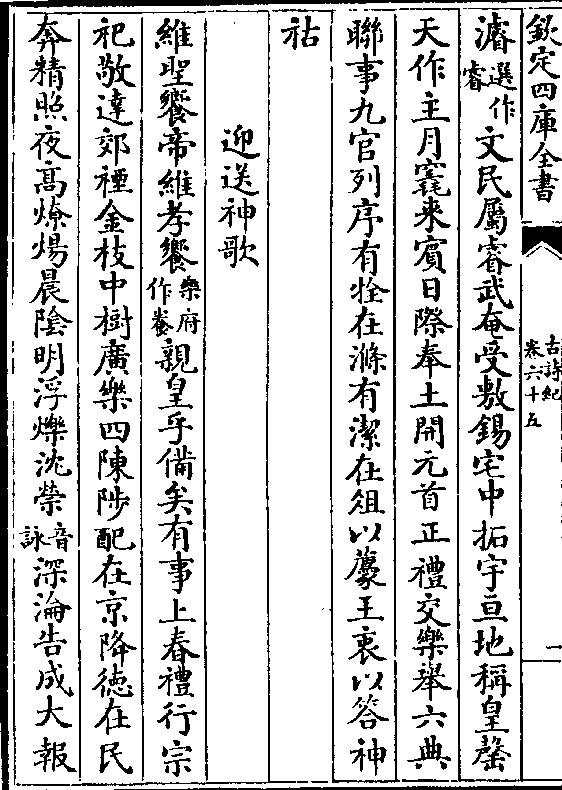 欽定四庫全書
古詩紀
卷六十五
一
濬選作睿文民屬睿武奄受敷錫宅中拓宇亘地稱皇罄
天作主月竁来賓日際奉土開元首正禮交樂舉六典
聯事九官列序有牷在滌有潔在俎以薦王衷以答神
祜
迎送神歌
維聖饗帝維孝饗樂府作養親皇乎備矣有事上春禮行宗
祀敬達郊禋金枝中樹廣樂四陳陟配在京降徳在民
奔精照夜髙燎煬晨陰明浮爍沈禜音詠深淪告成大報